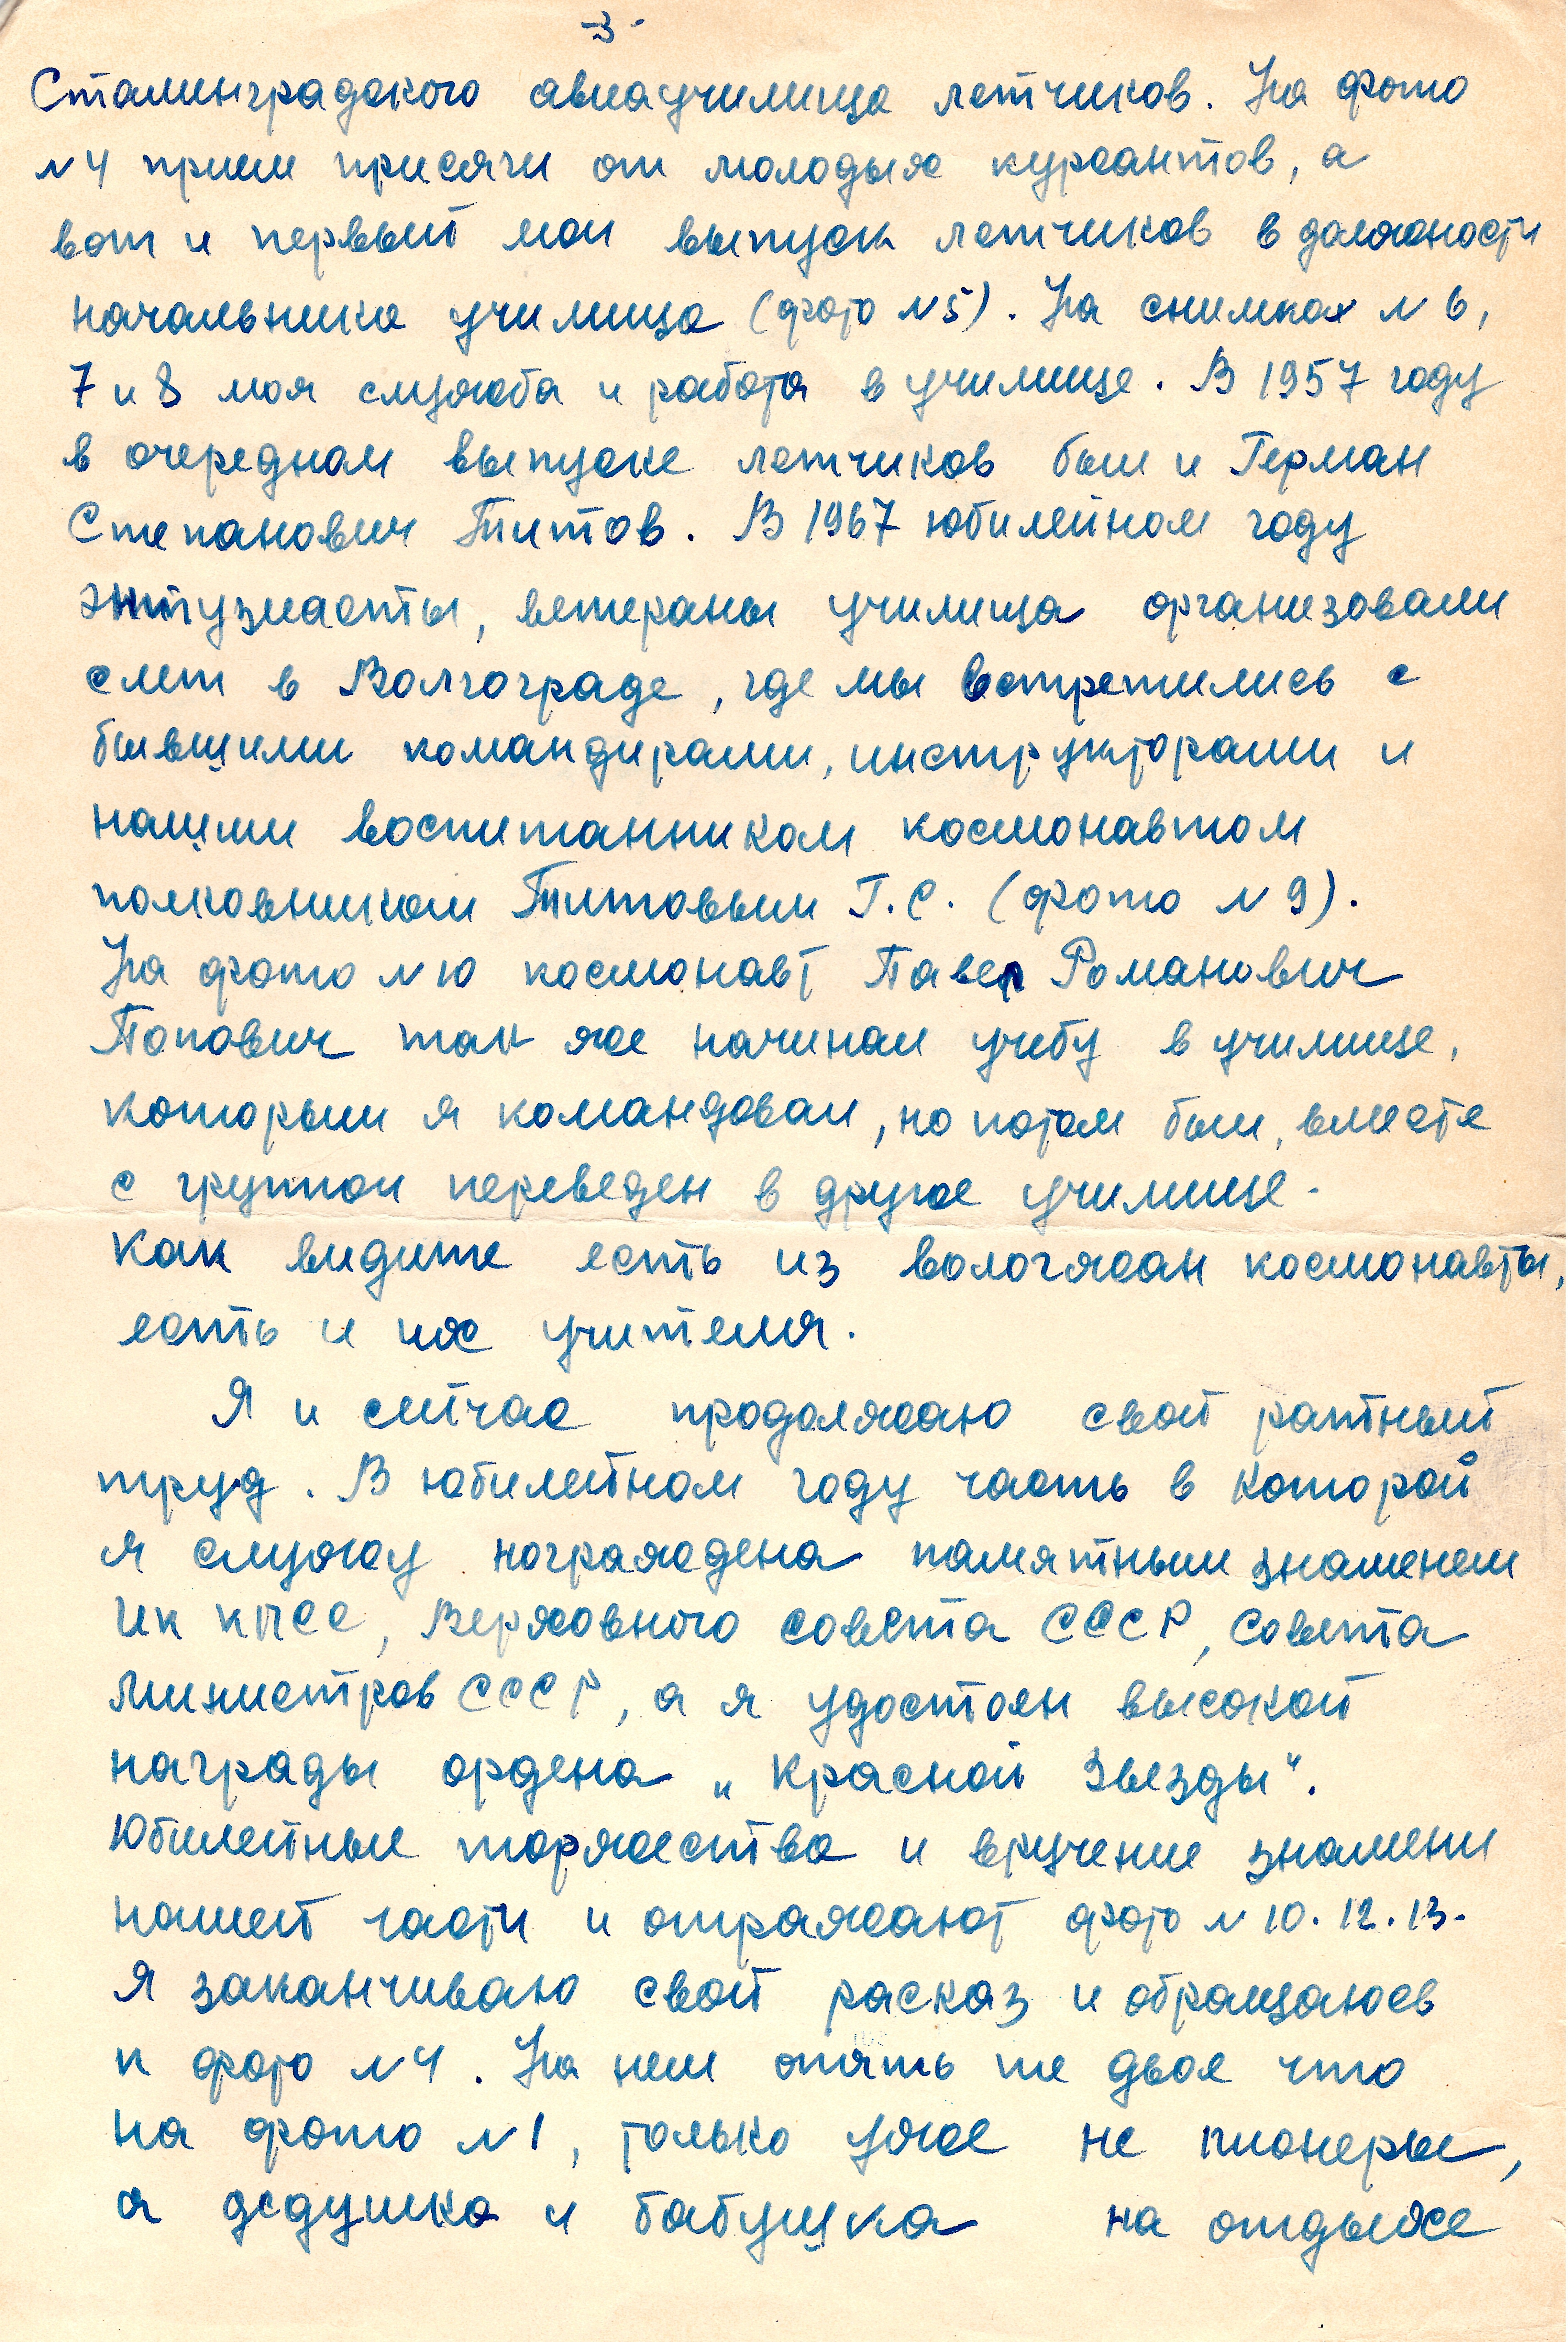 -3-
Сталинградского авиаучилища летчиков. На фото
N 4 прием присяги от молодых курсантов, а
вот и первый мои выпуск летчиков в должности
начальника училища (фото N 5). На снимках N 6,
7 и 8 моя служба и работа в училище. В 1957 году
в очередном выпуске летчиков был и Герман
Степанович Титов. В 1967 юбилейном году
энтузиасты, ветераны училища организовали
слет в Волгограде, где мы встретились с
бывшими командирами, инструкторами и
нашим воспитанником космонавтом
полковником Титовым Г.С. (фото N 9).
На фото N 10 космонавт Павел Романович
Попович так же начинал учебу в училище,
которым я командовал, но потом был, вместе
с группои переведен в другое училище.
Как видите есть из вологжан космонавты,
есть и их учителя.
Я и сейчас продолжаю свой ратный
труд. В юбилейном году часть в которой
я служу награждена памятным знаменем
ЦК КПСС, Верховного Совета СССР, Совета
Министров СССР, а я удостоен высокой
награды ордена „Красной Звезды".
Юбилейные торжества и вручение знамени
нашей части и отражают фото N 10. 12. 13.
Я заканчиваю свой расказ и обращаюсь
к фото N 4. На нем опять те двое что
на фото N 1, только уже не пионеры,
а дедушка и бабушка на отдыхе